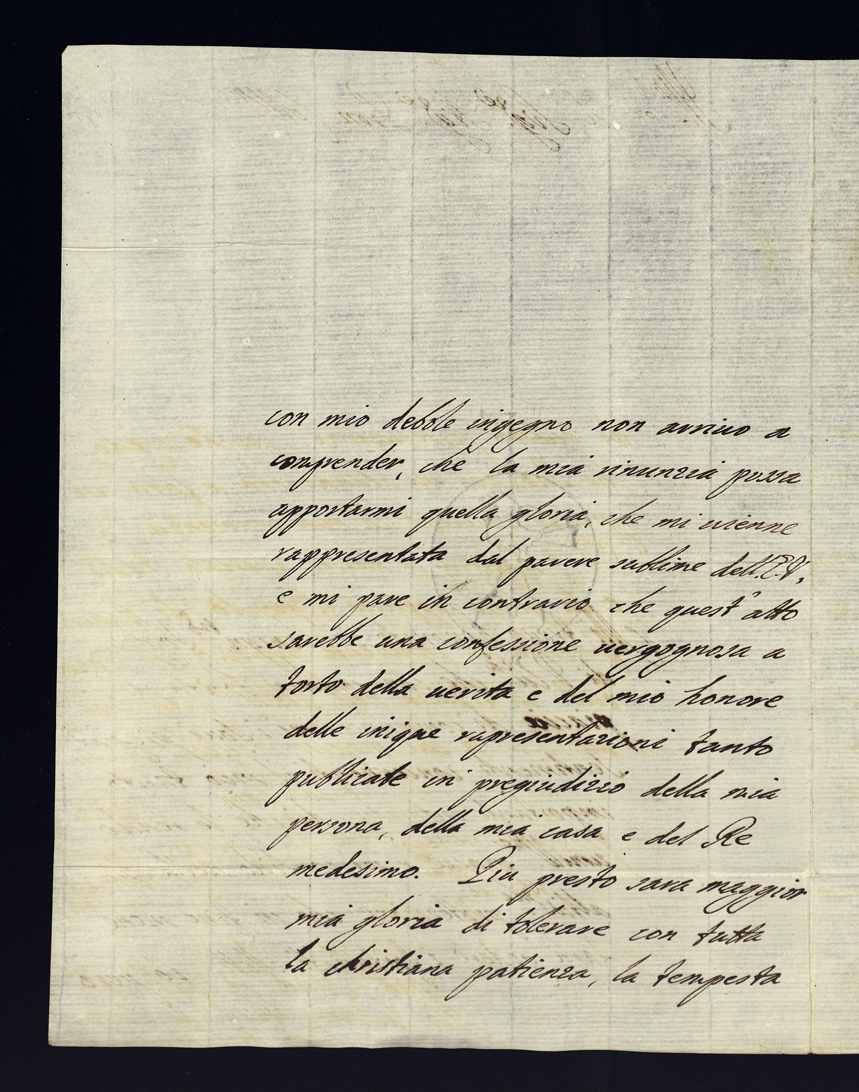 con mio debole ingegno non arrivo a
comprender, che la mia rinunzia possa
apportarmi quella gloria, che mi vienne
rappresentata dal parere sublime dell'E.V.,
e mi pare in contrario che quest'atto
sarebbe una confessione vergognosa a
torto della verita e del mio honore
delle inique rapresentazioni tanto
publicate in pregiudizio della mia
persona, della mia casa e del Re
medesimo. Piu presto sara maggior
mia gloria di tolerare con tutta
la christiana patienza, la tempesta